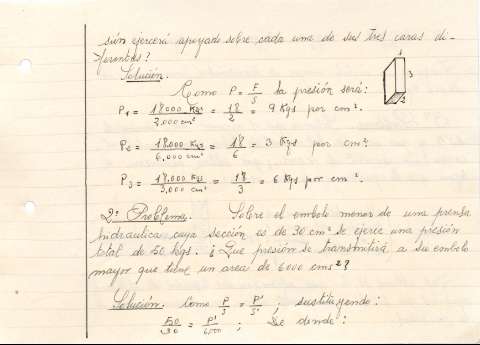 sión ejercerá apoyado sobre cada una de sus tres caras di-
ferentes?
Solución.
Como P = F/S la presión será:
P₁ = 18000 Kgs / 2,000 cm² = 18/2 = 9 Kgs por cm².
P₂ = 18,000 Kgs / 6,000 cm² = 18/6 = 3 Kgs por cm².
P₃ = 18,000 Kgs / 3,000 cm² = 18/3 = 6 Kgs por cm².
1
3
2
2º Problema. Sobre el embolo menor de una prensa
hidraulica cuya sección es de 30 cm² se ejerce una presión
total de 50 kgs. ¿Que presión se transmitirá a su embolo
mayor que tiene un area de 6000 cms²?
Solución. Como P/S = P'/S' ; sustituyendo:
50/30 = P'/6000 ; de donde: